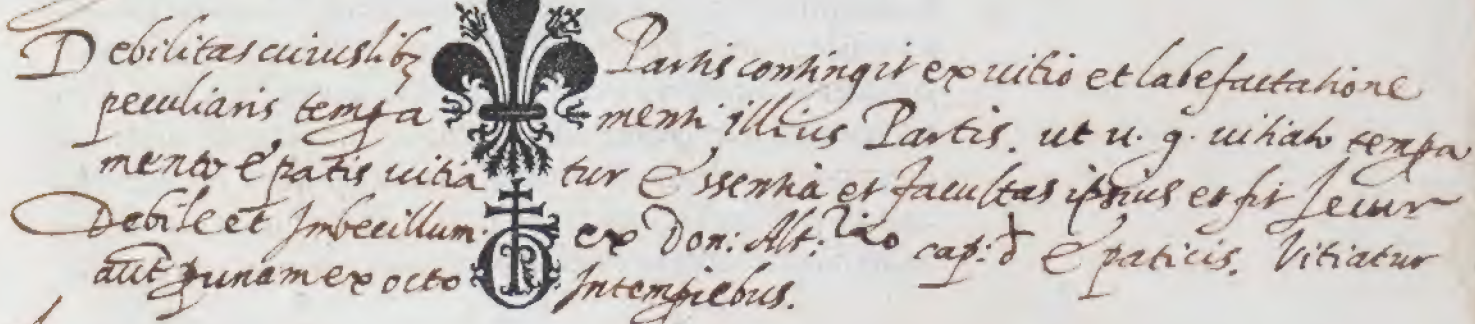 Debilitas cuiuslibꝫ Partis contingit ex uitio et labefactatione
peculiaris tempa menti illius Partis. ut u. g. uitiato tempa
mento Epatis uitia tur Essentia et facultas ipsius et fit Jecur
Debile et Imbecillum. ex Don: Alt: cap: d Epaticis. Vitiatur
aūt ꝑ unam ex octo Intempiebus.